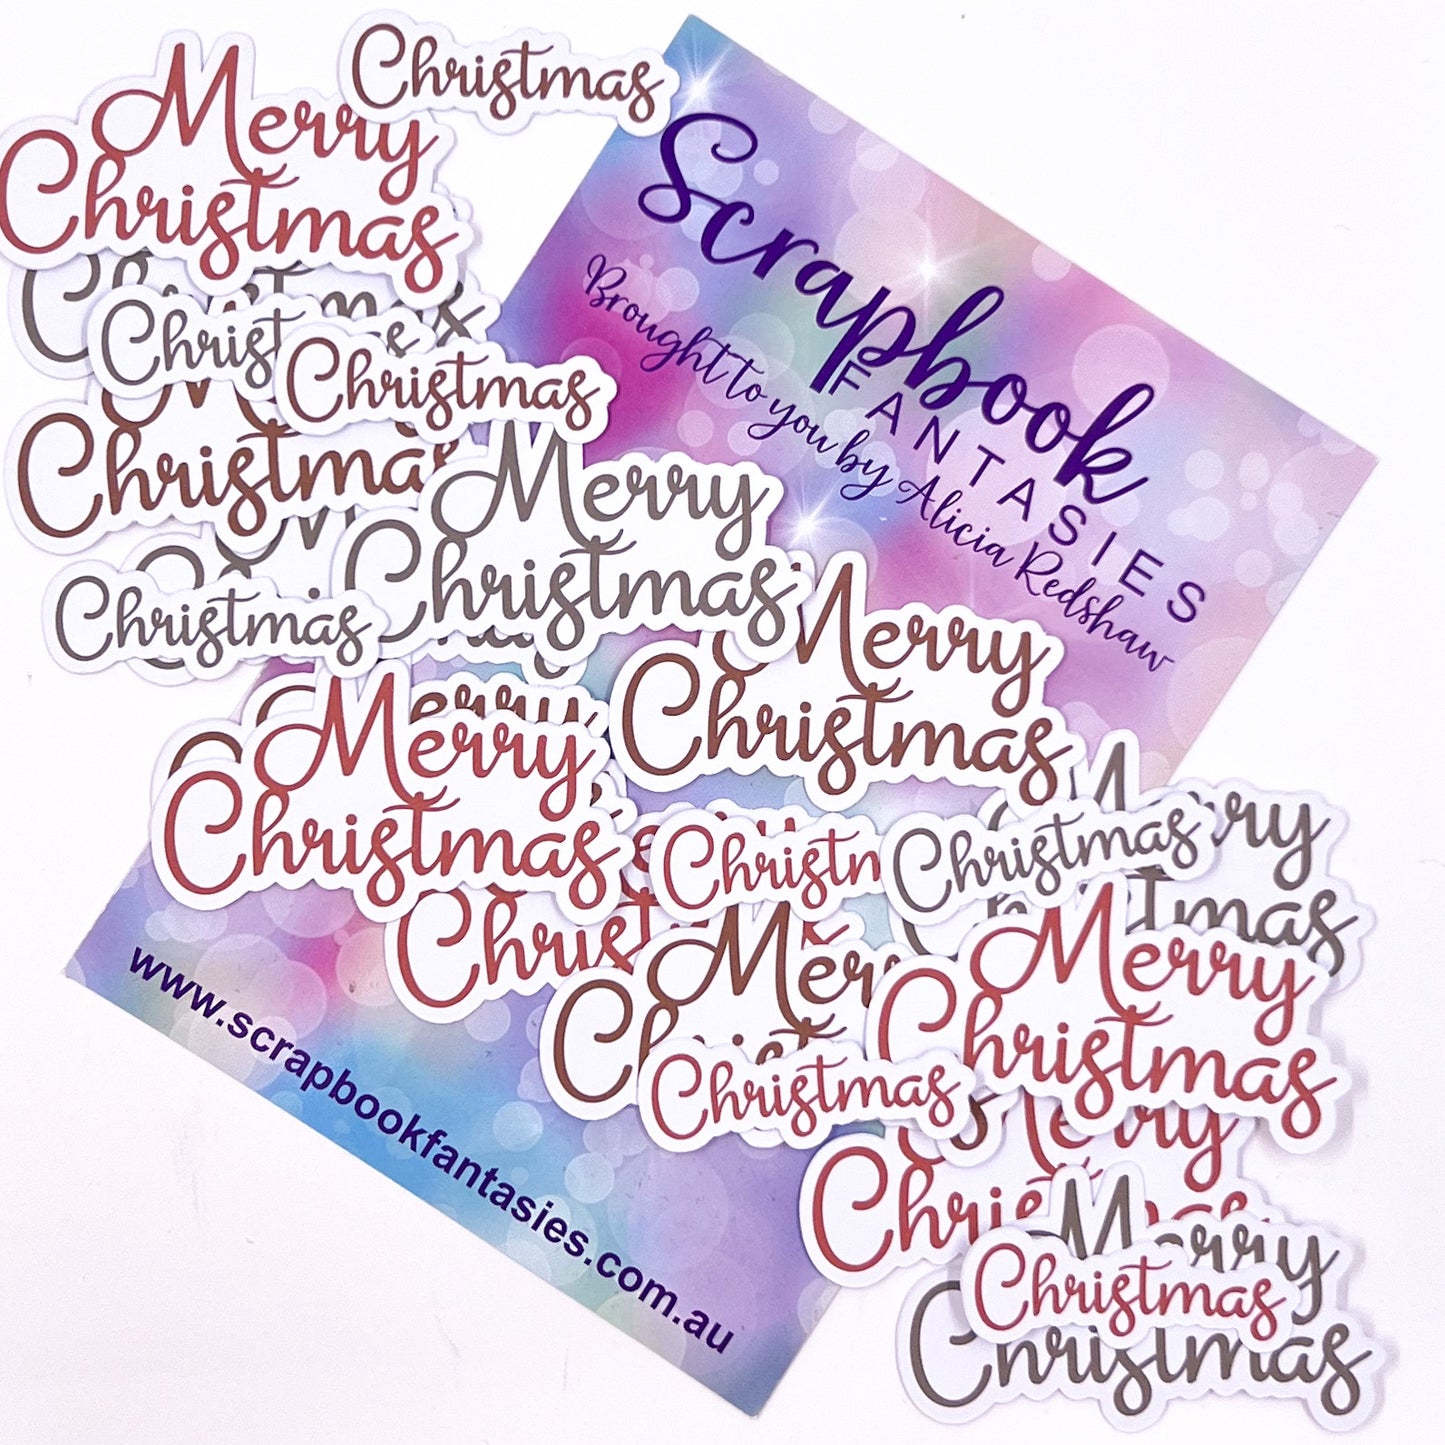 Christmas
Merry
Christmas
Scrapbook
FANTASIES
Brought to you by Alicia Redshaw
Christmas
Christmas
Christmas
Christmas
Merry
Christmas
Christmas
Merry
Christmas
Merry
Merry
Christmas
Christmas
Christmas
Merry
Christmas
Christmas
Merry
Christmas
Merry
Christmas
www.scrapbookfantasies.com.au